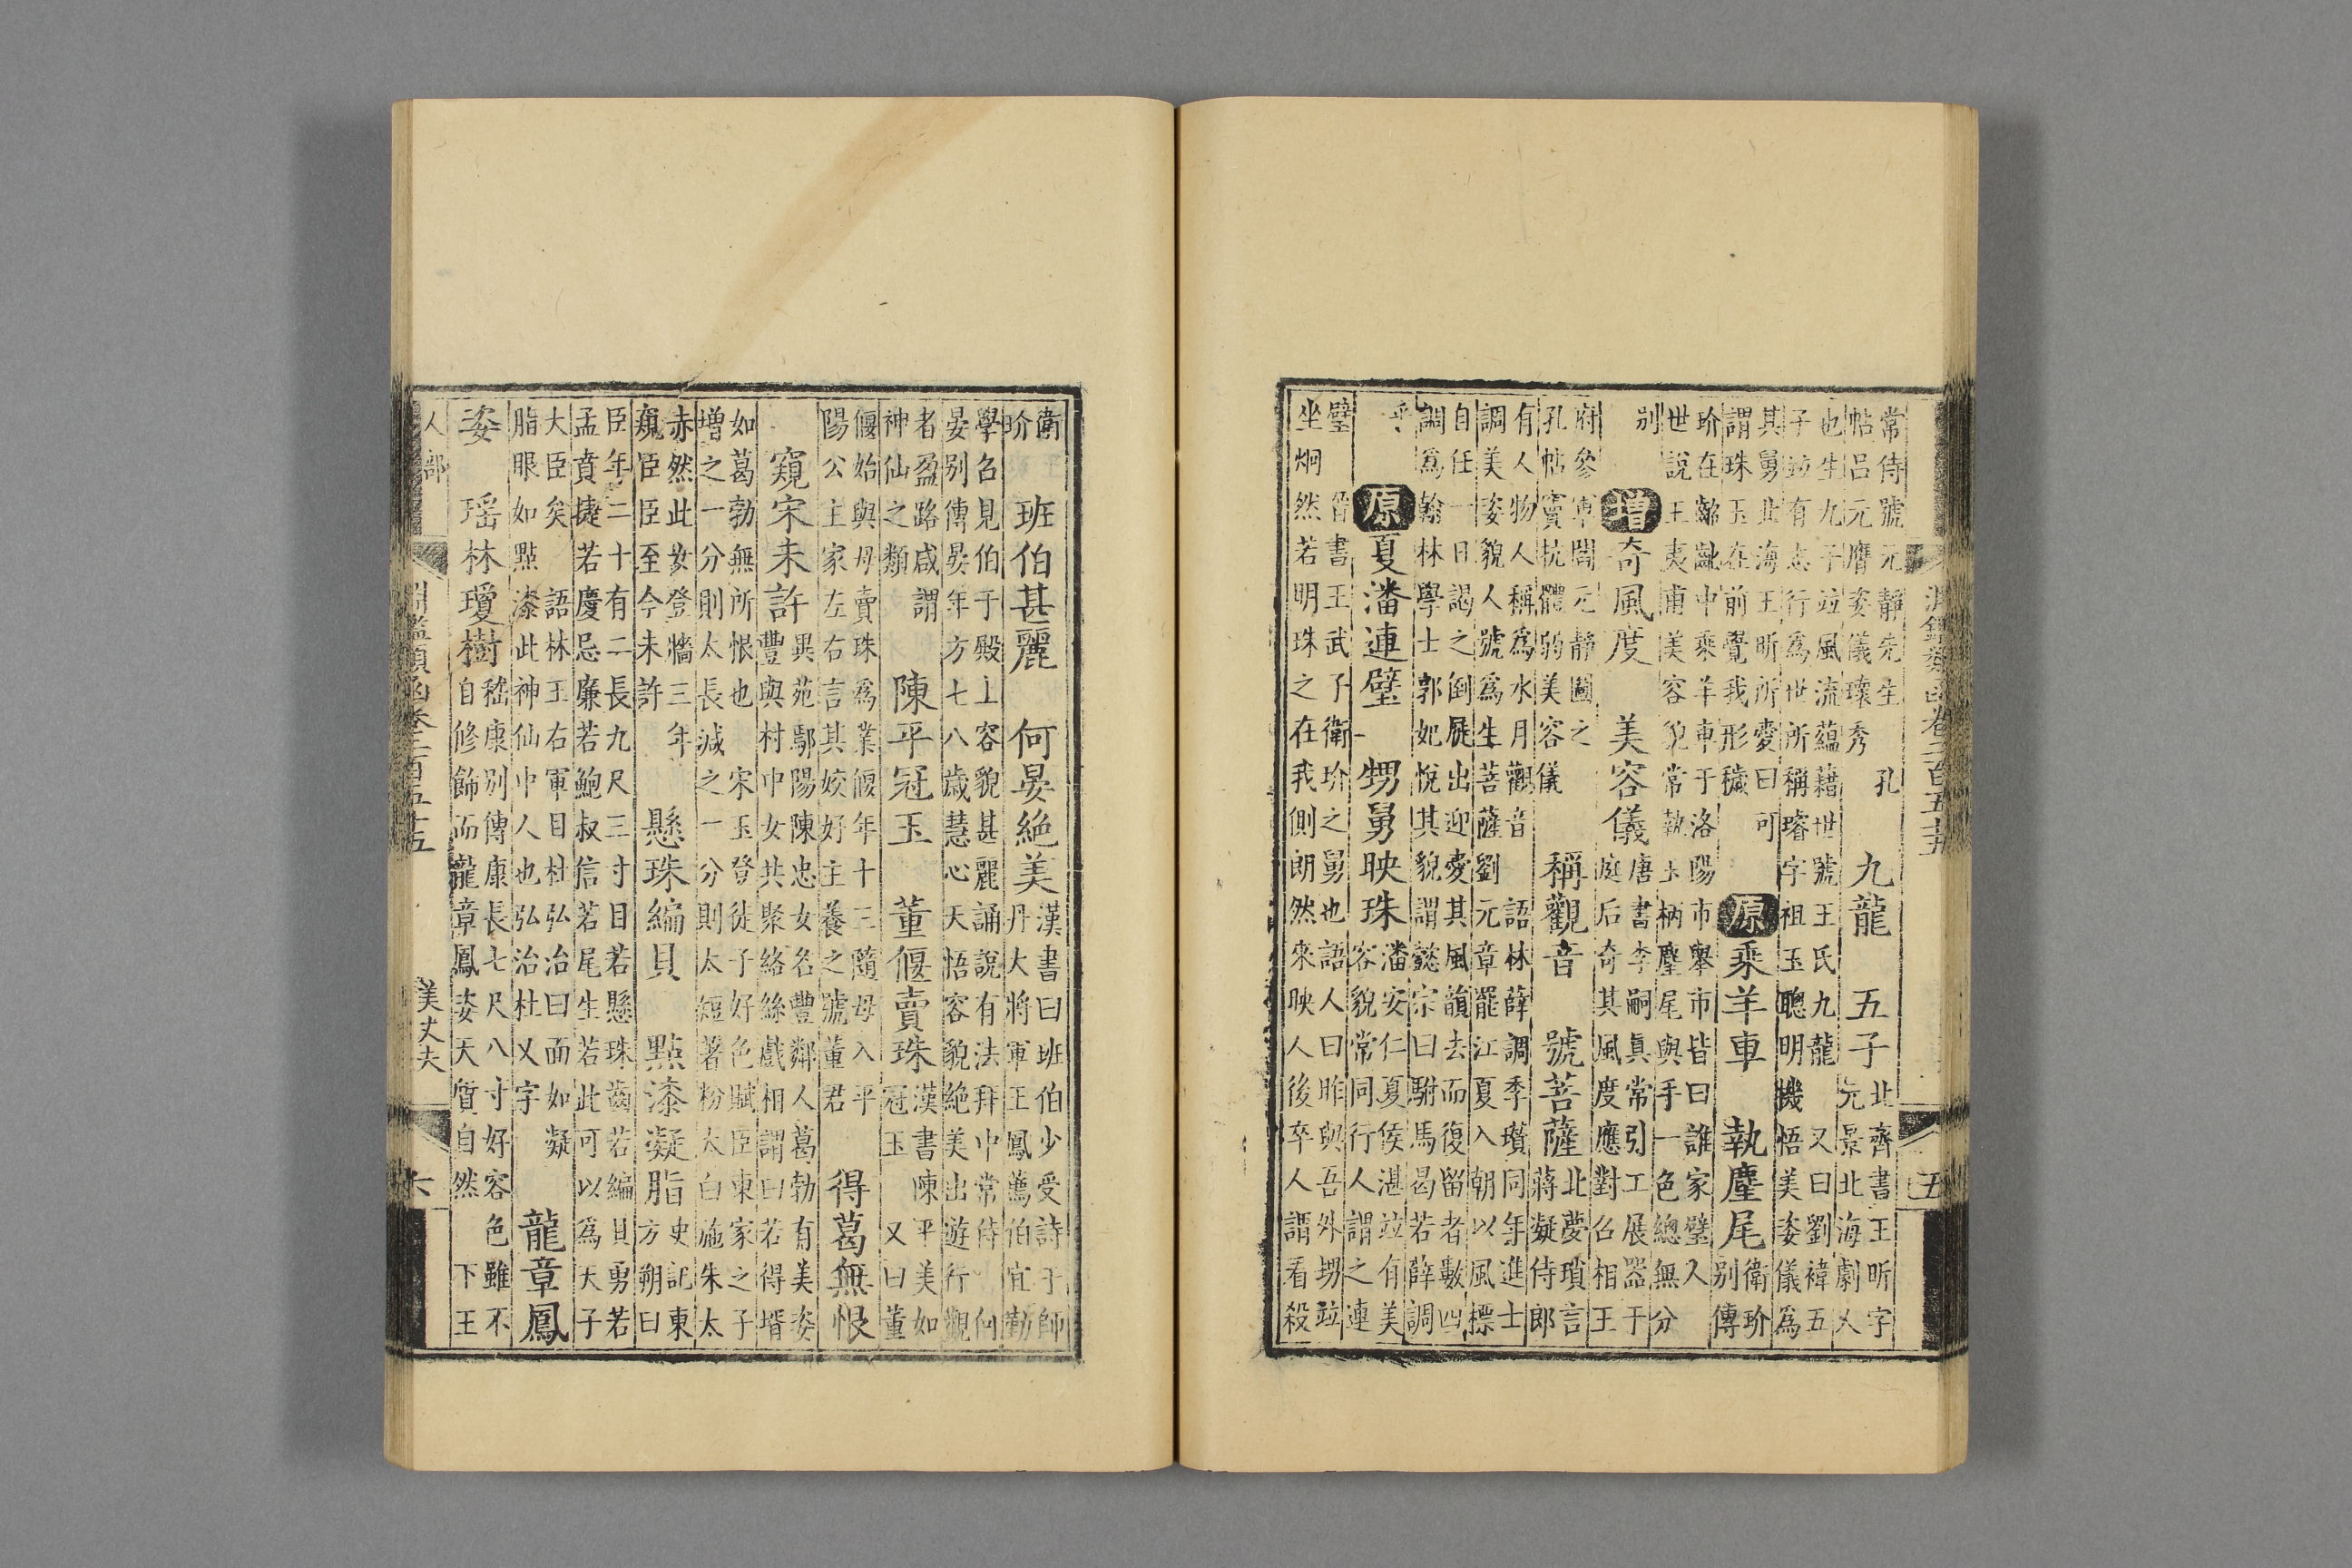 淵鑑類函卷二百五十五
五
常侍號元靜先生 孔
帖吕元膺姿儀瓌秀
九龍 五子
北齊書王昕字
元景北海劇人
也生九子竝風流蘊藉世號王氏九龍 又曰劉禕五
子竝有志行為世所稱璿字祖玉聰明機悟美姿儀為
其舅北海王昕所愛曰可
謂珠玉在前覺我形穢
原 乘羊車 執麈尾
衛玠
别傳
玠在齠齔中乘羊車于洛陽市舉市皆曰誰家璧人
世說王夷甫美容貌常執玉柄麈尾與手一色總無分
别
增 奇風度 美容儀
唐書李嗣真常引工展器于
庭后奇其風度應對召相王
府參軍閻元靜圖之
孔帖竇抗體弱美容儀
稱觀音 號菩薩
北夢瑣言
蔣凝侍郎
有人物人稱為水月觀音 語林薛調季瓚同年進士
調美姿貌人號為生菩薩劉元章罷江夏入朝以風標
自任一日謁之倒屣出迎愛其風韻去而復留者數四
調為翰林學士郭妃悅其貌謂懿宗曰駙馬曷若薛調
乎
原 夏潘連璧 甥舅映珠
潘安仁夏侯湛竝有美
容貌常同行人謂之連
璧 晉書王武子衛玠之舅也語人曰昨與吾外甥竝
坐炯然若明珠之在我側朗然來映人後卒人謂看殺
衛
玠
班伯甚麗 何晏絶美
漢書曰班伯少受詩于師
丹大將軍王鳳薦伯宜勤
學召見伯于殿上容貌甚麗誦說有法拜中常侍 何
晏别傳晏年方七八歲慧心天悟容貌絶美出遊行觀
者盈路咸謂
神仙之類
陳平冠玉 董偃賣珠
漢書陳平美如
冠玉 又曰董
偃始與母賣珠為業偃年十三隨母入平
陽公主家左右言其姣好主養之號董君
得葛無恨
窺宋未許
異苑鄢陽陳忠女名豐鄰人葛勃有美姿
豐與村中女共聚絡絲戲相謂曰若得壻
如葛勃無所恨也 宋玉登徒子好色賦臣東家之子
增之一分則太長減之一分則太短著粉太白施朱太
赤然此女登牆三年
窺臣臣至今未許
懸珠編貝 點漆凝脂
史記東
方朔曰
臣年二十有二長九尺三寸目若懸珠齒若編貝勇若
孟賁捷若慶忌廉若鮑叔信若尾生若此可以為天子
大臣矣 語林王右軍目杜弘治曰面如凝
脂眼如點漆此神仙中人也弘治杜乂字
龍章鳳
姿 瑶林瓊樹
嵇康别傳康長七尺八寸好容色雖不
自修飾而龍章鳳姿天質自然 下王
人部
淵鑑類函卷二百五十五
美丈夫
六